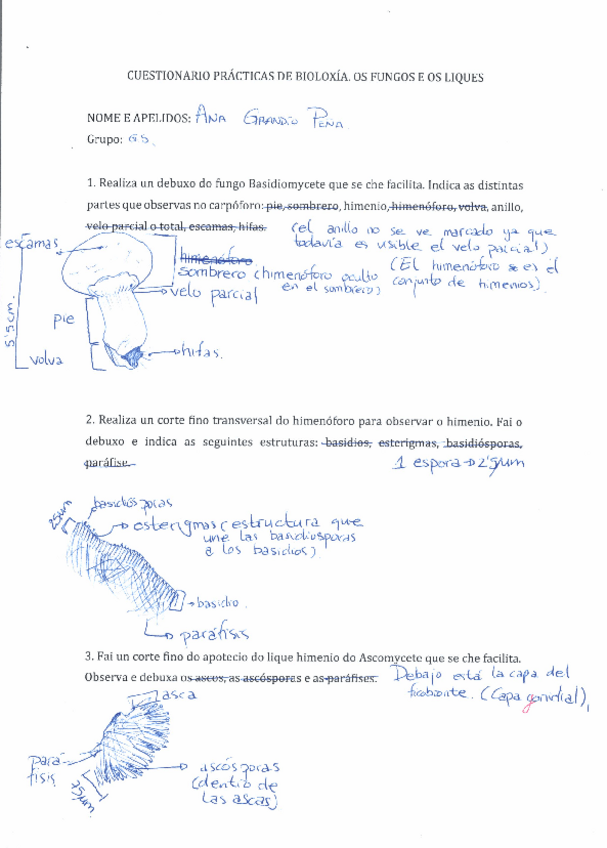 CUESTIONARIO PRÁCTICAS DE BIOLOXÍA. OS FUNGOS E OS LIQUES
NOME E APELIDOS: ANA GRANDÍO PENA
Grupo: G5.
1. Realiza un debuxo do fungo Basidiomycete que se che facilita. Indica as distintas
partes que observas no carpóforo: pie, sombrero, himenio, himenóforo, volva, anillo,
velo parcial o total, escamas, hifas.
(el anillo no se ve marcado ya que
todavía es visible el velo parcial)
escamas
himenóforo
sombrero (himenóforo oculto
en el sombrero)
(El himenóforo se es el
conjunto de himenios).
velo parcial
pie
5'5cm.
volva
hifas.
2. Realiza un corte fino transversal do himenóforo para observar o himenio. Fai o
debuxo e indica as seguintes estruturas: basidios, esterigmas, basidiósporas,
paráfise.
1 espora → 2'5µm
25µm
basidiósporas
esterigmas (estructura que
une las basidiosporas
a los basidios)
basidio
paráfisis
3. Fai un corte fino do apotecio do lique himenio do Ascomycete que se che facilita.
Observa e debuxa os ascos, as ascósporas e as paráfises.
Debajo está la capa del
(Capa gonidial)
asca
pará-
fisis
75µm
ascósporas
(dentro de
las ascas)